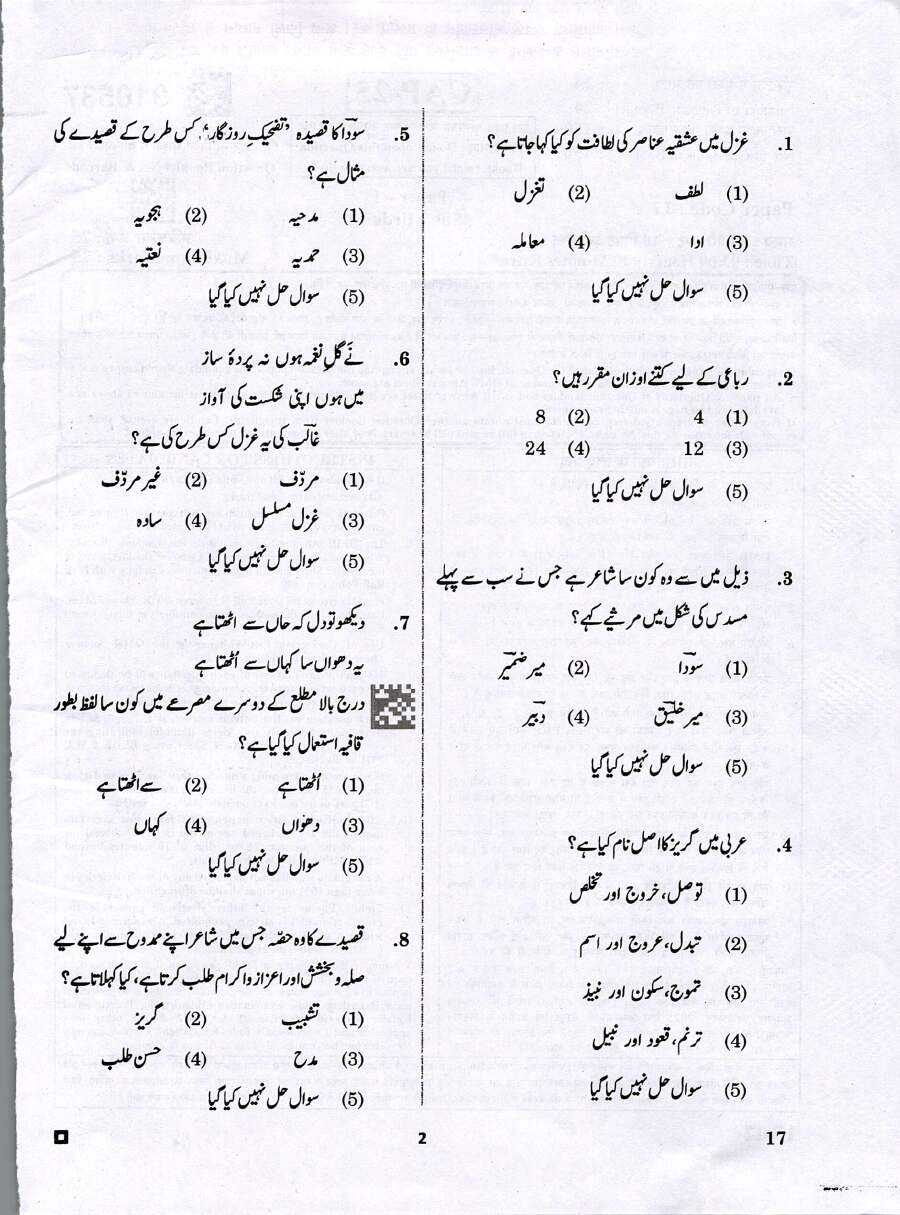 1. غزل میں عشقیہ عناصر کی لطافت کو کیا کہا جاتا ہے؟
(1) لطف (2) تغزل
(3) ادا (4) معاملہ
(5) سوال حل نہیں کیا گیا
2. رباعی کے لیے کتنے اوزان مقرر ہیں؟
(1) 4 (2) 8
(3) 12 (4) 24
(5) سوال حل نہیں کیا گیا
3. ذیل میں سے وہ کون سا شاعر ہے جس نے سب سے پہلے
مسدس کی شکل میں مرثیے کہے؟
(1) سوداؔ (2) میر ضمیرؔ
(3) میر خلیقؔ (4) دبیرؔ
(5) سوال حل نہیں کیا گیا
4. عربی میں گریز کا اصل نام کیا ہے؟
(1) توصل، خروج اور تخلص
(2) تبدل، عروج اور اسم
(3) تموج، سکون اور نبیذ
(4) ترنم، قعود اور نبیل
(5) سوال حل نہیں کیا گیا
5. سوداؔ کا قصیدہ ’تضحیکِ روزگار‘، کس طرح کے قصیدے کی
مثال ہے؟
(1) مدحیہ (2) ہجویہ
(3) حمدیہ (4) نعتیہ
(5) سوال حل نہیں کیا گیا
6. نَے گلِ نغمہ ہوں نہ پردۂ ساز
میں ہوں اپنی شکست کی آواز
غالبؔ کی یہ غزل کس طرح کی ہے؟
(1) مردّف (2) غیر مردّف
(3) غزل مسلسل (4) سادہ
(5) سوال حل نہیں کیا گیا
7. دیکھو تو دل کہ جاں سے اٹھتا ہے
یہ دھواں سا کہاں سے اُٹھتا ہے
درج بالا مطلع کے دوسرے مصرعے میں کون سا لفظ بطور
قافیہ استعمال کیا گیا ہے؟
(1) اُٹھتا ہے (2) سے اٹھتا ہے
(3) دھواں (4) کہاں
(5) سوال حل نہیں کیا گیا
8. قصیدے کا وہ حصّہ جس میں شاعر اپنے ممدوح سے اپنے لیے
صلہ و بخشش اور اعزاز و اکرام طلب کرتا ہے، کیا کہلاتا ہے؟
(1) تشبیب (2) گریز
(3) مدح (4) حسن طلب
(5) سوال حل نہیں کیا گیا
2
17